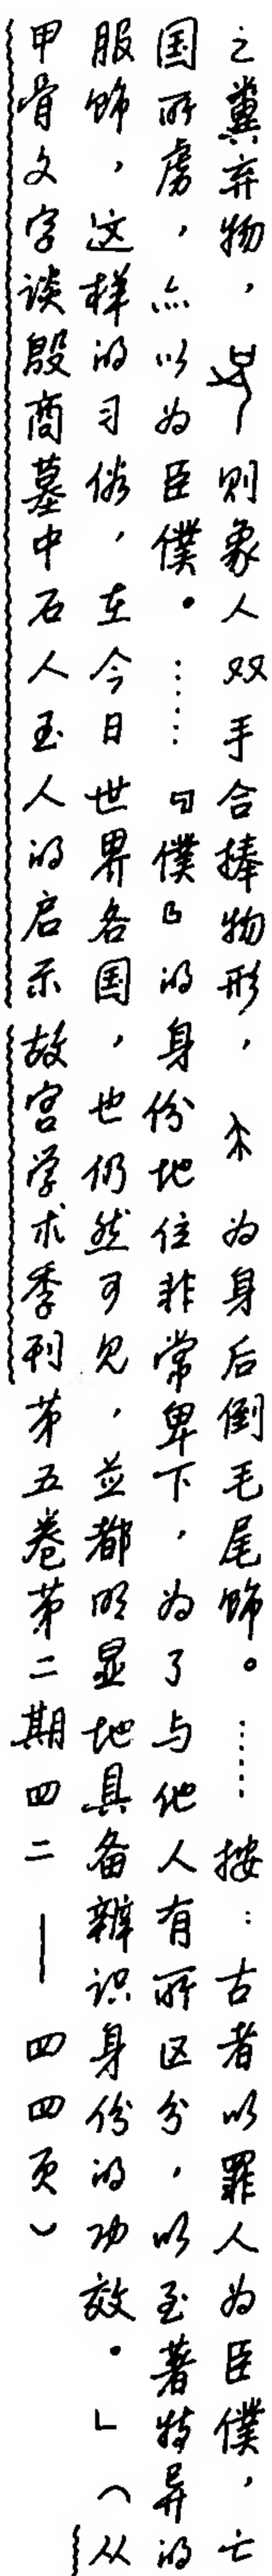 之糞弃物，则象人双手合捧物形，为身后倒毛尾饰。……按：古者以罪人为臣僕，亡
国所虏，亦以为臣僕。……『僕』的身份地位非常卑下，为了与他人有所区分，以至著特异的
服饰，这样的习俗，在今日世界各国，也仍然可见，并都明显地具备辨识身份的功效。」（从
甲骨文字谈殷商墓中石人玉人的启示故宫学术季刊第五卷第二期四二——四四页）